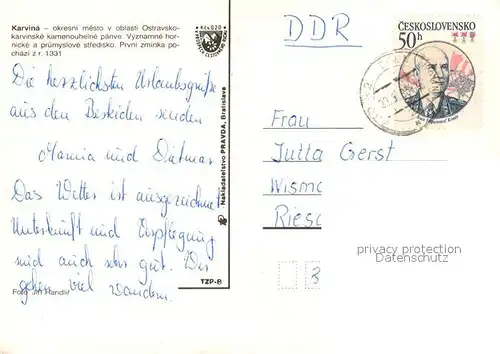 Karviná – okresní město v oblasti Ostravsko-
karvinské kamenouhelné pánve. Významné hor-
nické a průmyslové středisko. První zmínka po-
chází z r. 1331
Kčs 0,20
Die herzlichsten Urlaubsgrüße
aus den Beskiden senden
und Dietmar
Das Wetter ist ausgezeichnet
Unterkunft und Verpflegung
sind auch sehr gut. Wir
gehen viel wandern.
Foto Jiří Handlíř
Nakladatelstvo PRAVDA, Bratislava
TZP-B
DDR
ČESKOSLOVENSKO
50h
Frau
Jutta Gerst
Wisma
Riesa
3
privacy protection
Datenschutz